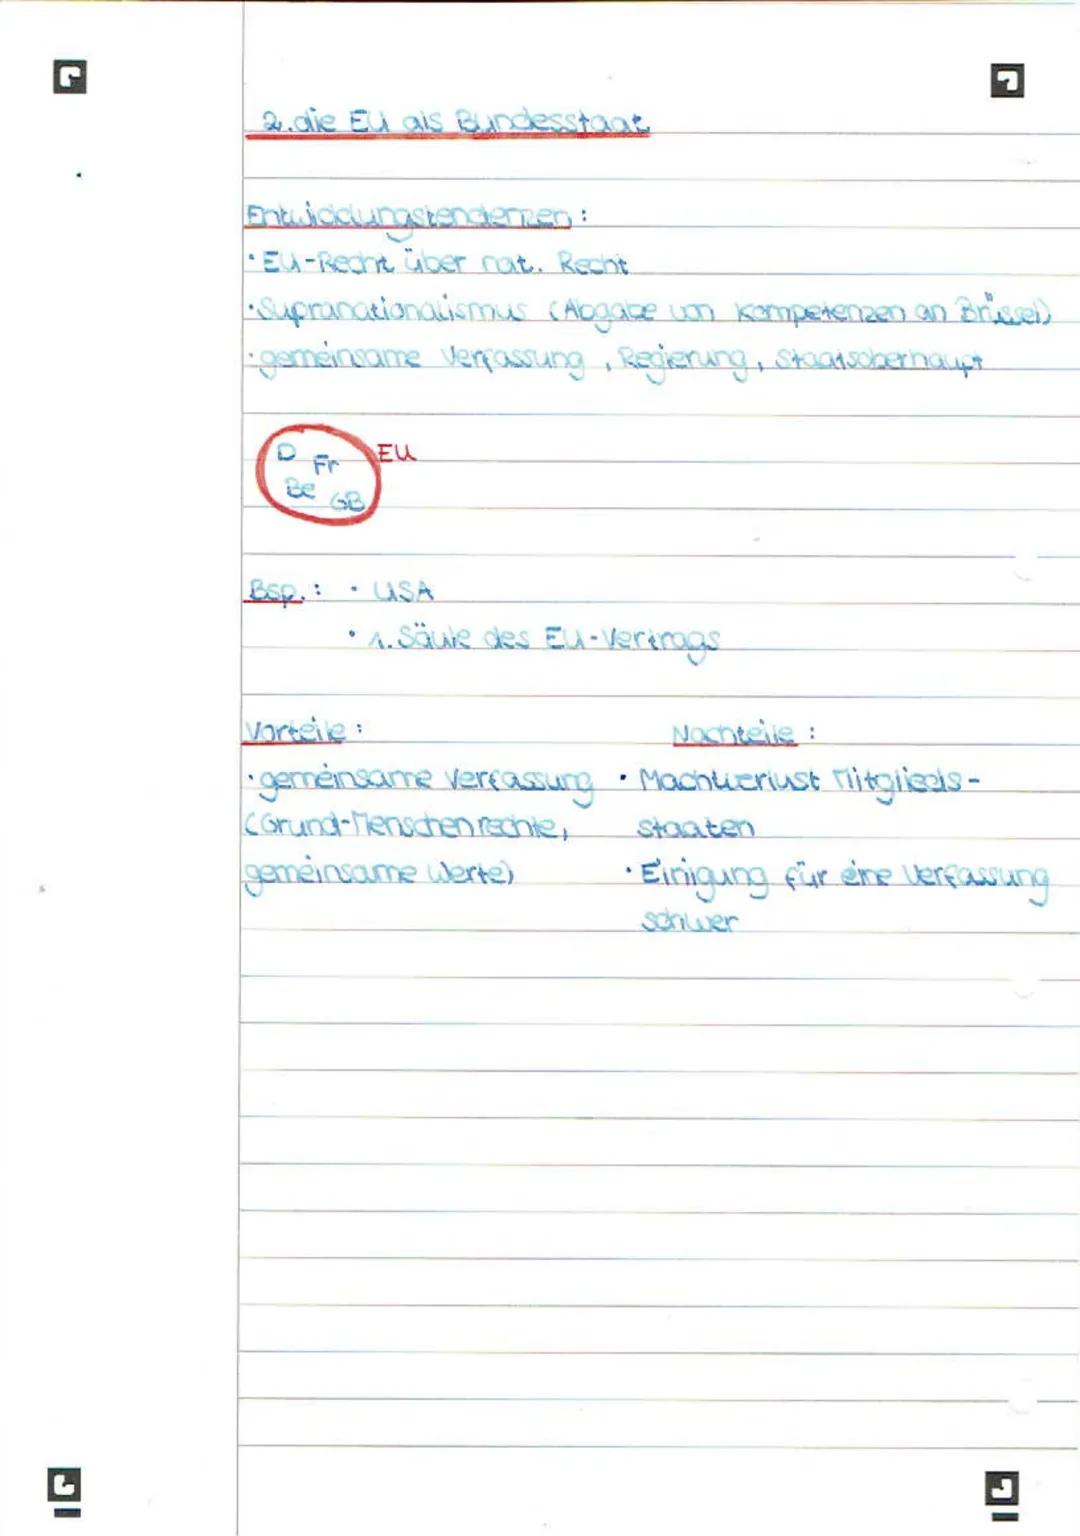 2. die EU als Bundesstaat
Entwicklungstendenzen:
• EU-Recht über nat. Recht
• Supranationalismus (Abgabe von Kompetenzen an Brüssel)
• gemeinsame Verfassung, Regierung, Staatsoberhaupt
D Fr EU
Be GB
Bsp.: • USA
• 1. Säule des EU-Vertrags
Vorteile: Nachteile:
• gemeinsame Verfassung • Machtverlust Mitglieds-
(Grund-Menschenrechte, staaten
gemeinsame Werte) • Einigung für eine Verfassung
schwer